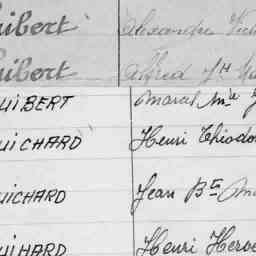 uibert Alexandre Vict
uibert Alfred Jh Ma
UIBERT Marcel Mie J
UICHARD Henri Théodo
UICHARD Jean Bte Ma
UIHARD Henri Herve